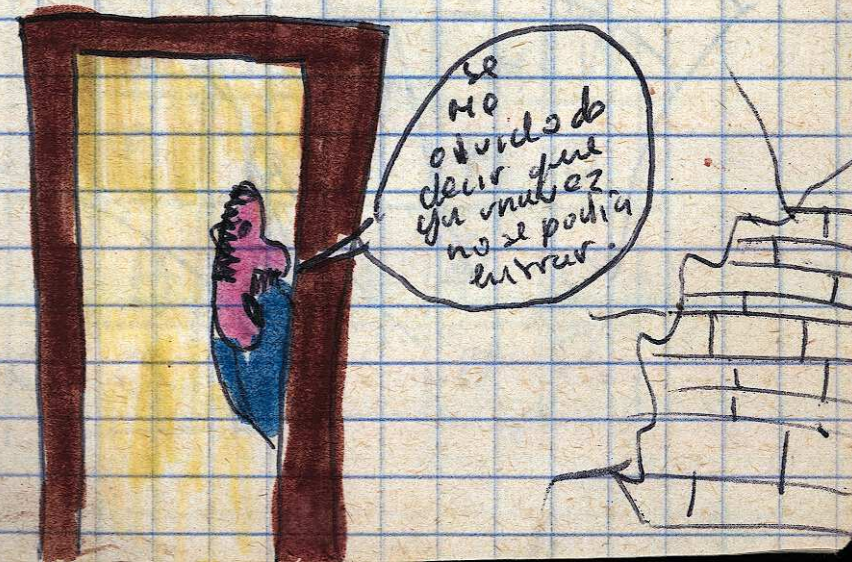 se
me
olvidado
decir que
ya una vez
no se podia
entrar.